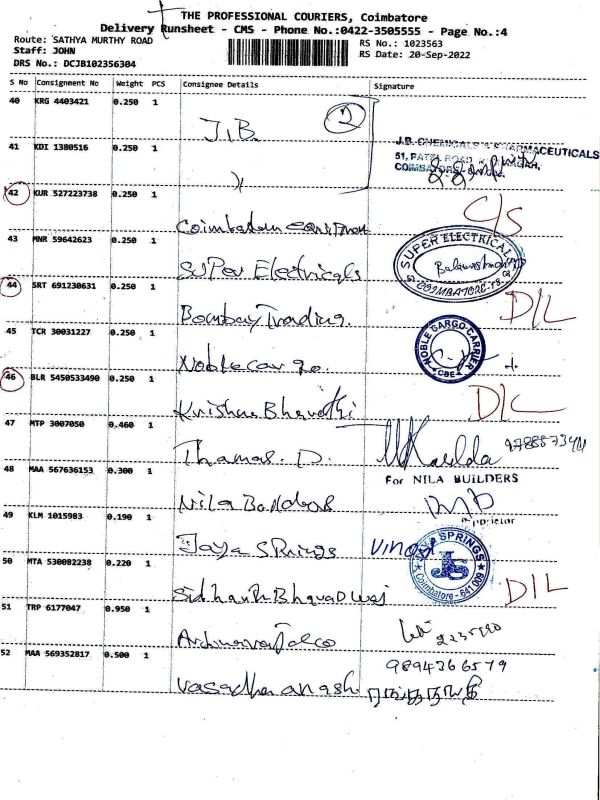 THE PROFESSIONAL COURIERS, Coimbatore
Delivery Runsheet - CMS - Phone No.:0422-3505555 - Page No.:4
Route: SATHYA MURTHY ROAD
RS No.: 1023563
Staff: JOHN
RS Date: 20-Sep-2022
DRS No.: DCJB102356304
S No Consignment No Weight PCS Consignee Details Signature
40 KRG 4403421 0.250 1
J.B. 2
41 KDI 1380516 0.250 1
J.B. CHEMICALS & PHARMACEUTICALS
51, PATEL ROAD, NAGAR,
COIMBATORE
42 KUR 527223738 0.250 1
C/S
Coimbatore
43 MNR 59642623 0.250 1
SUPER ELECTRICALS
COIMBATORE
Super Electricals
44 SRT 691230631 0.250 1
D/L
Bombay Trading.
45 TCR 30031227 0.250 1
NOBLE CARGO CARRIER
CBE
Noble cargo.
46 BLR 5450533490 0.250 1
D/L
Krishna Bharathi
47 MTP 3007050 0.460 1
Thomas. D.
48 MAA 567636153 0.300 1
For NILA BUILDERS
Proprietor
Nila Builders
49 KLM 1015983 0.190 1
Jaya Springs Vinod
JAYA SPRINGS
JS
Coimbatore - 641 009
50 MTA 530082238 0.220 1
D/L
Sidhanth Bharadwaj
51 TRP 6177047 0.950 1
52 MAA 569352817 0.500 1
9894366579